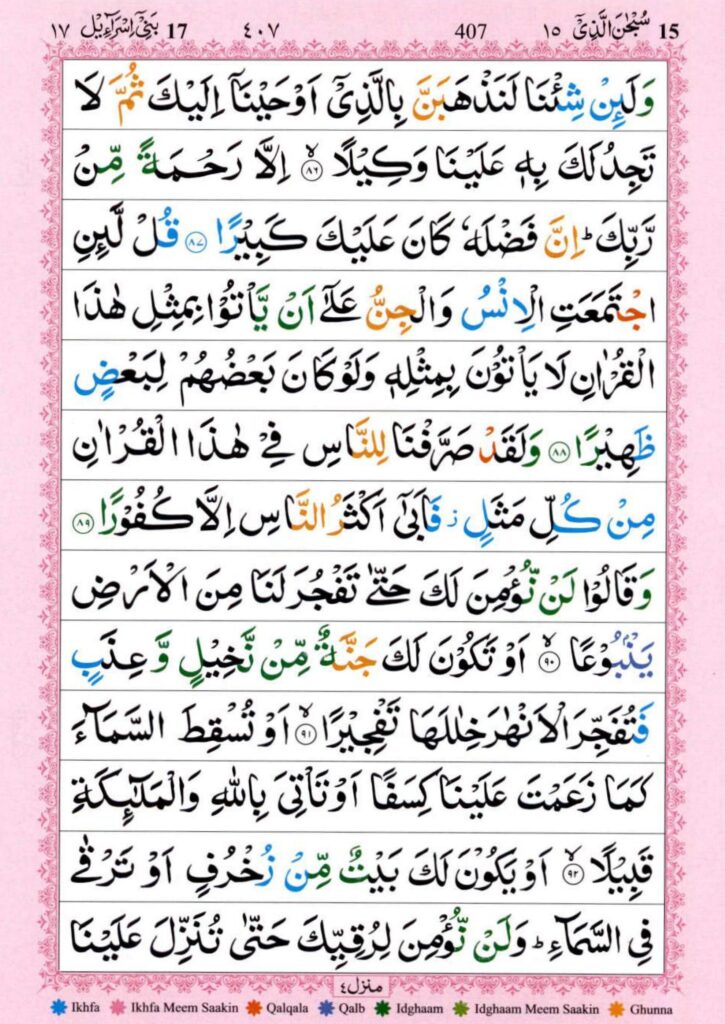 15 سُبْحٰنَ الَّذِیْۤ ١٥ 407 ٤٠٧ 17 بَنِیْۤ اِسْرَآءِیْل ١٧
وَلَئِنْ شِئْنَا لَنَذْهَبَنَّ بِالَّذِیْۤ اَوْحَیْنَاۤ اِلَیْكَ ثُمَّ لَا
تَجِدُ لَكَ بِهٖ عَلَیْنَا وَكِیْلًا ۙ‏﴿٨٦﴾ اِلَّا رَحْمَةً مِّنْ
رَّبِّكَ ؕ اِنَّ فَضْلَهٗ كَانَ عَلَیْكَ كَبِیْرًا ﴿٨٧﴾ قُلْ لَّئِنِ
اجْتَمَعَتِ الْاِنْسُ وَالْجِنُّ عَلٰۤی اَنْ یَّاْتُوْا بِمِثْلِ هٰذَا
الْقُرْاٰنِ لَا یَاْتُوْنَ بِمِثْلِهٖ وَلَوْ كَانَ بَعْضُهُمْ لِبَعْضٍ
ظَهِیْرًا ﴿٨٨﴾ وَلَقَدْ صَرَّفْنَا لِلنَّاسِ فِیْ هٰذَا الْقُرْاٰنِ
مِنْ كُلِّ مَثَلٍ ز فَاَبٰۤی اَكْثَرُ النَّاسِ اِلَّا كُفُوْرًا ﴿٨٩﴾
وَقَالُوْا لَنْ نُّؤْمِنَ لَكَ حَتّٰی تَفْجُرَ لَنَا مِنَ الْاَرْضِ
یَنْۢبُوْعًا ۙ‏﴿٩٠﴾ اَوْ تَكُوْنَ لَكَ جَنَّةٌ مِّنْ نَّخِیْلٍ وَّ عِنَبٍ
فَتُفَجِّرَ الْاَنْهٰرَ خِلٰلَهَا تَفْجِیْرًا ۙ‏﴿٩١﴾ اَوْ تُسْقِطَ السَّمَآءَ
كَمَا زَعَمْتَ عَلَیْنَا كِسَفًا اَوْ تَاْتِیَ بِاللّٰهِ وَالْمَلٰٓئِكَةِ
قَبِیْلًا ۙ‏﴿٩٢﴾ اَوْ یَكُوْنَ لَكَ بَیْتٌ مِّنْ زُخْرُفٍ اَوْ تَرْقٰی
فِی السَّمَآءِ ؕ وَلَنْ نُّؤْمِنَ لِرُقِیِّكَ حَتّٰی تُنَزِّلَ عَلَیْنَا
منزل٤
Ikhfa Ikhfa Meem Saakin Qalqala Qalb Idghaam Idghaam Meem Saakin Ghunna